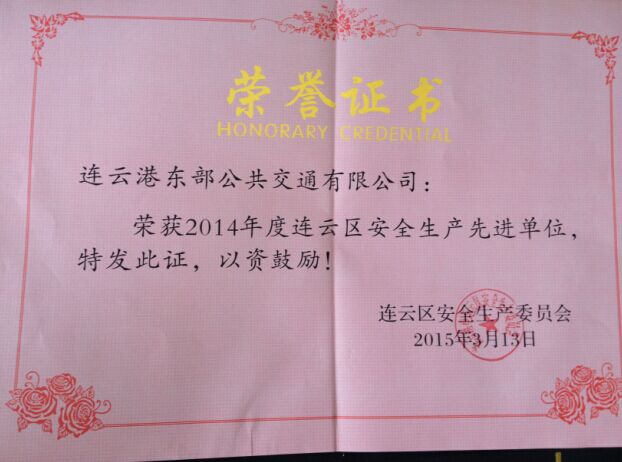 荣誉证书
HONORARY CREDENTIAL
连云港东部公共交通有限公司：
荣获2014年度连云区安全生产先进单位，
特发此证，以资鼓励！
连云区安全生产委员会
2015年3月13日